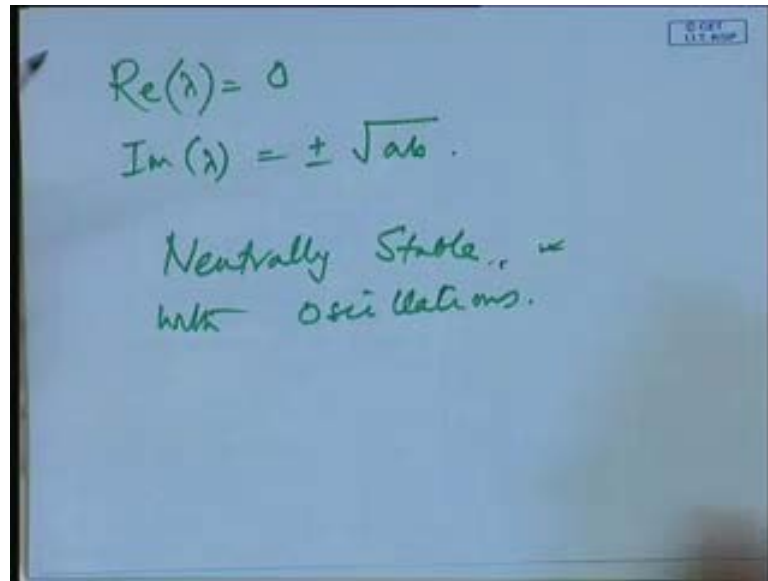 © CET
I.I.T. KGP
Re(λ) = 0
Im(λ) = ± √ab.
Neutrally Stable,
with Oscillations.